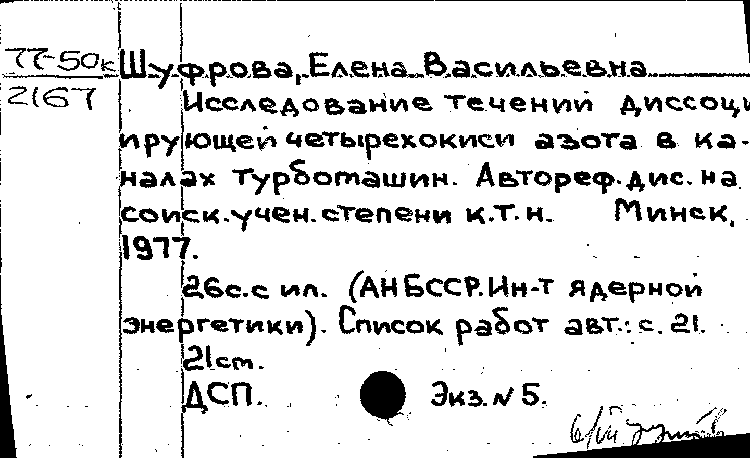 77-50к Шуфрова, Елена Васильевна
2167 Исследование течений диссоци
ирующей четырехокиси азота в ка-
налах турбомашин. Автореф. дис. на
соиск. учен. степени к.т.н. Минск,
1977.
26с.с ил. (АН БССР. Ин-т ядерной
энергетики). Список работ авт.: с. 21.
21см.
ДСП. Экз. N 5.